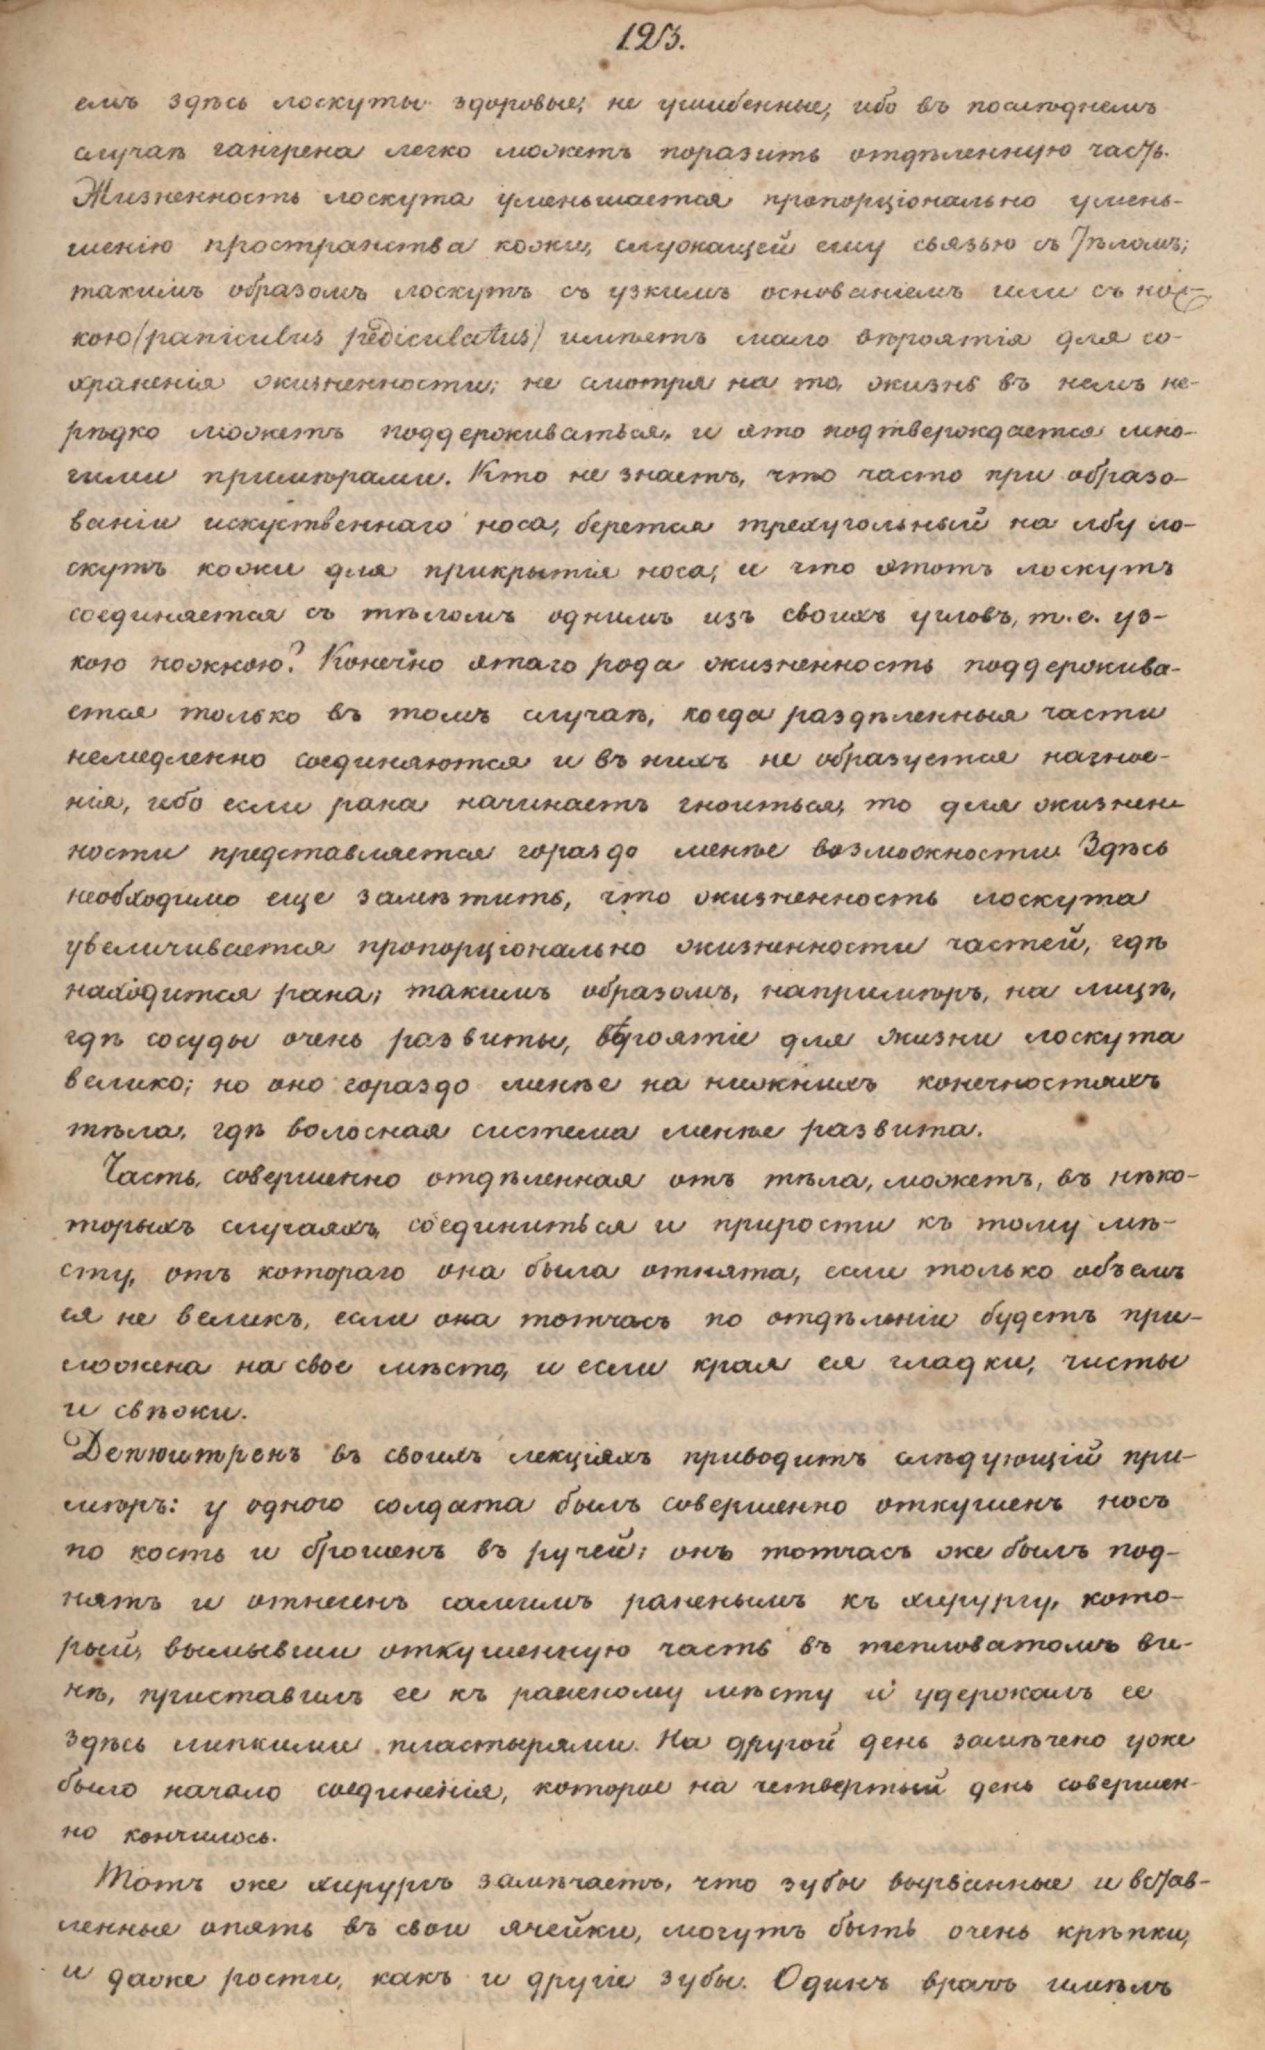 123.
емъ здѣсь лоскуты здоровые, не ушибенные, ибо въ послѣднемъ
случаѣ гангрена легко можетъ поразить отдѣленную часть.
Жизненность лоскута уменьшается пропорціонально умень-
шенію пространства кожи, служащей ему связью съ тѣломъ;
такимъ образомъ лоскутъ съ узкимъ основаніемъ или съ нож-
кою (paniculus pediculatus) имѣетъ мало вѣроятія для со-
храненія жизненности; не смотря на то, жизнь въ немъ не-
рѣдко можетъ поддерживаться, и это подтверждается мно-
гими примѣрами. Кто не знаетъ, что часто при образо-
ваніи искуственнаго носа, берется трехугольный на лбу ло-
скутъ кожи для прикрытія носа, и что этотъ лоскутъ
соединяется съ тѣломъ однимъ изъ своихъ угловъ, т. е. уз-
кою ножкою? Конечно этаго рода жизненность поддержива-
ется только въ томъ случаѣ, когда раздѣленныя части
немедленно соединяются и въ нихъ не образуется нагное-
нія, ибо если рана начинаетъ гноиться, то для жизнен
ности представляется гораздо менѣе возможности. Здѣсь
необходимо еще замѣтить, что жизненность лоскута
увеличивается пропорціонально жизненности частей, гдѣ
находится рана; такимъ образомъ, напримѣръ, на лицѣ,
гдѣ сосуды очень развиты, вѣроятіе для жизни лоскута
велико; но оно гораздо менѣе на нижнихъ конечностяхъ
тѣла, гдѣ волосная система менѣе развита.
Часть, совершенно отдѣленная отъ тѣла, можетъ, въ нѣко-
торыхъ случаяхъ, соединиться и прирости къ тому мѣ-
сту, отъ котораго она была отнята, если только объемъ
ея не великъ, если она тотчасъ по отдѣленіи будетъ при-
ложена на свое мѣсто, и если края ея гладки, чисты
и свѣжи.
Депюитренъ въ своихъ лекціяхъ приводитъ слѣдующій при-
мѣръ: у одного солдата былъ совершенно откушенъ носъ
по кость и брошенъ въ ручей; онъ тотчасъ же былъ под-
нятъ и отнесенъ самимъ раненымъ къ хирургу, кото-
рый, вымывши откушенную часть въ тепловатомъ ви-
нѣ, приставилъ ее къ раненому мѣсту и удержалъ ее
здѣсь липкими пластырями. На другой день замѣчено уже
было начало соединенія, которое на четвертый день совершен-
но кончилось.
Тотъ же хирургъ замѣчаетъ, что зубы вырванные и встав-
ленные опять въ свои ячейки, могутъ быть очень крѣпки,
и даже рости, какъ и другіе зубы. Одинъ врачъ имѣлъ